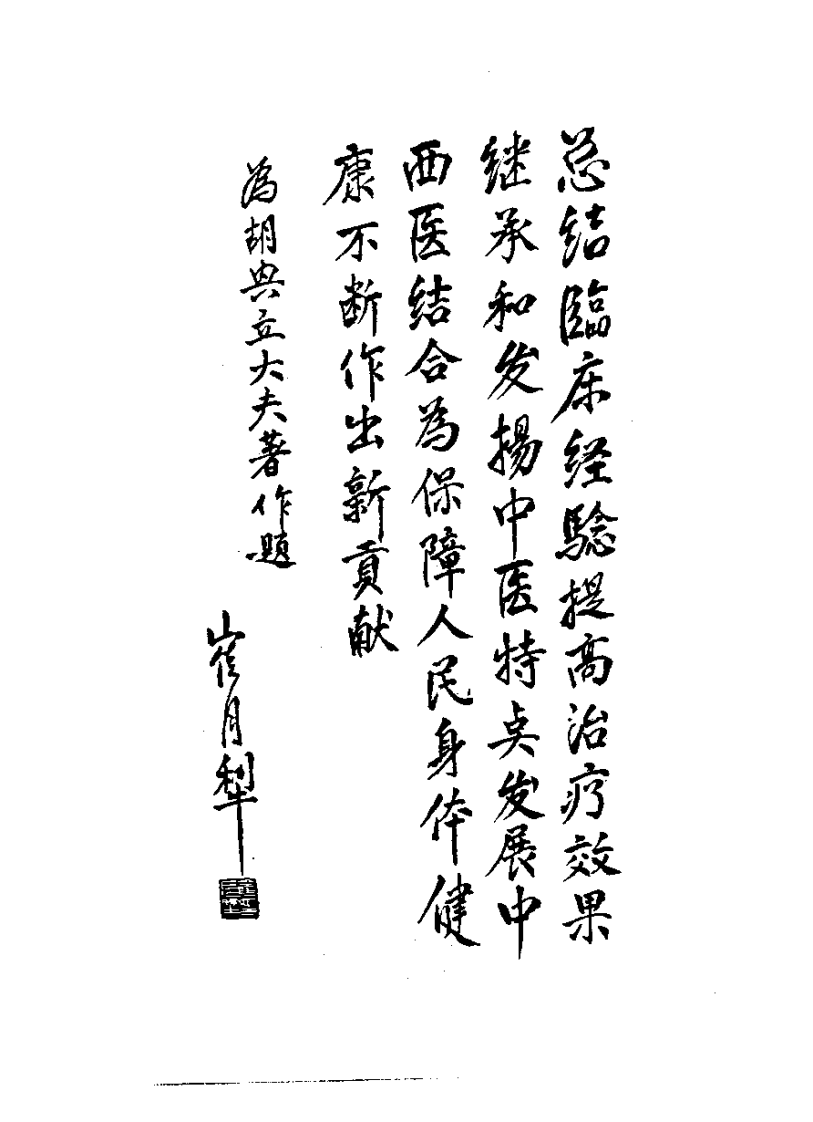 总结臨床经驗提高治疗效果
继承和发揚中医特点发展中
西医结合為保障人民身体健
康不断作出新貢献
為胡典立大夫著作題
崔月犁